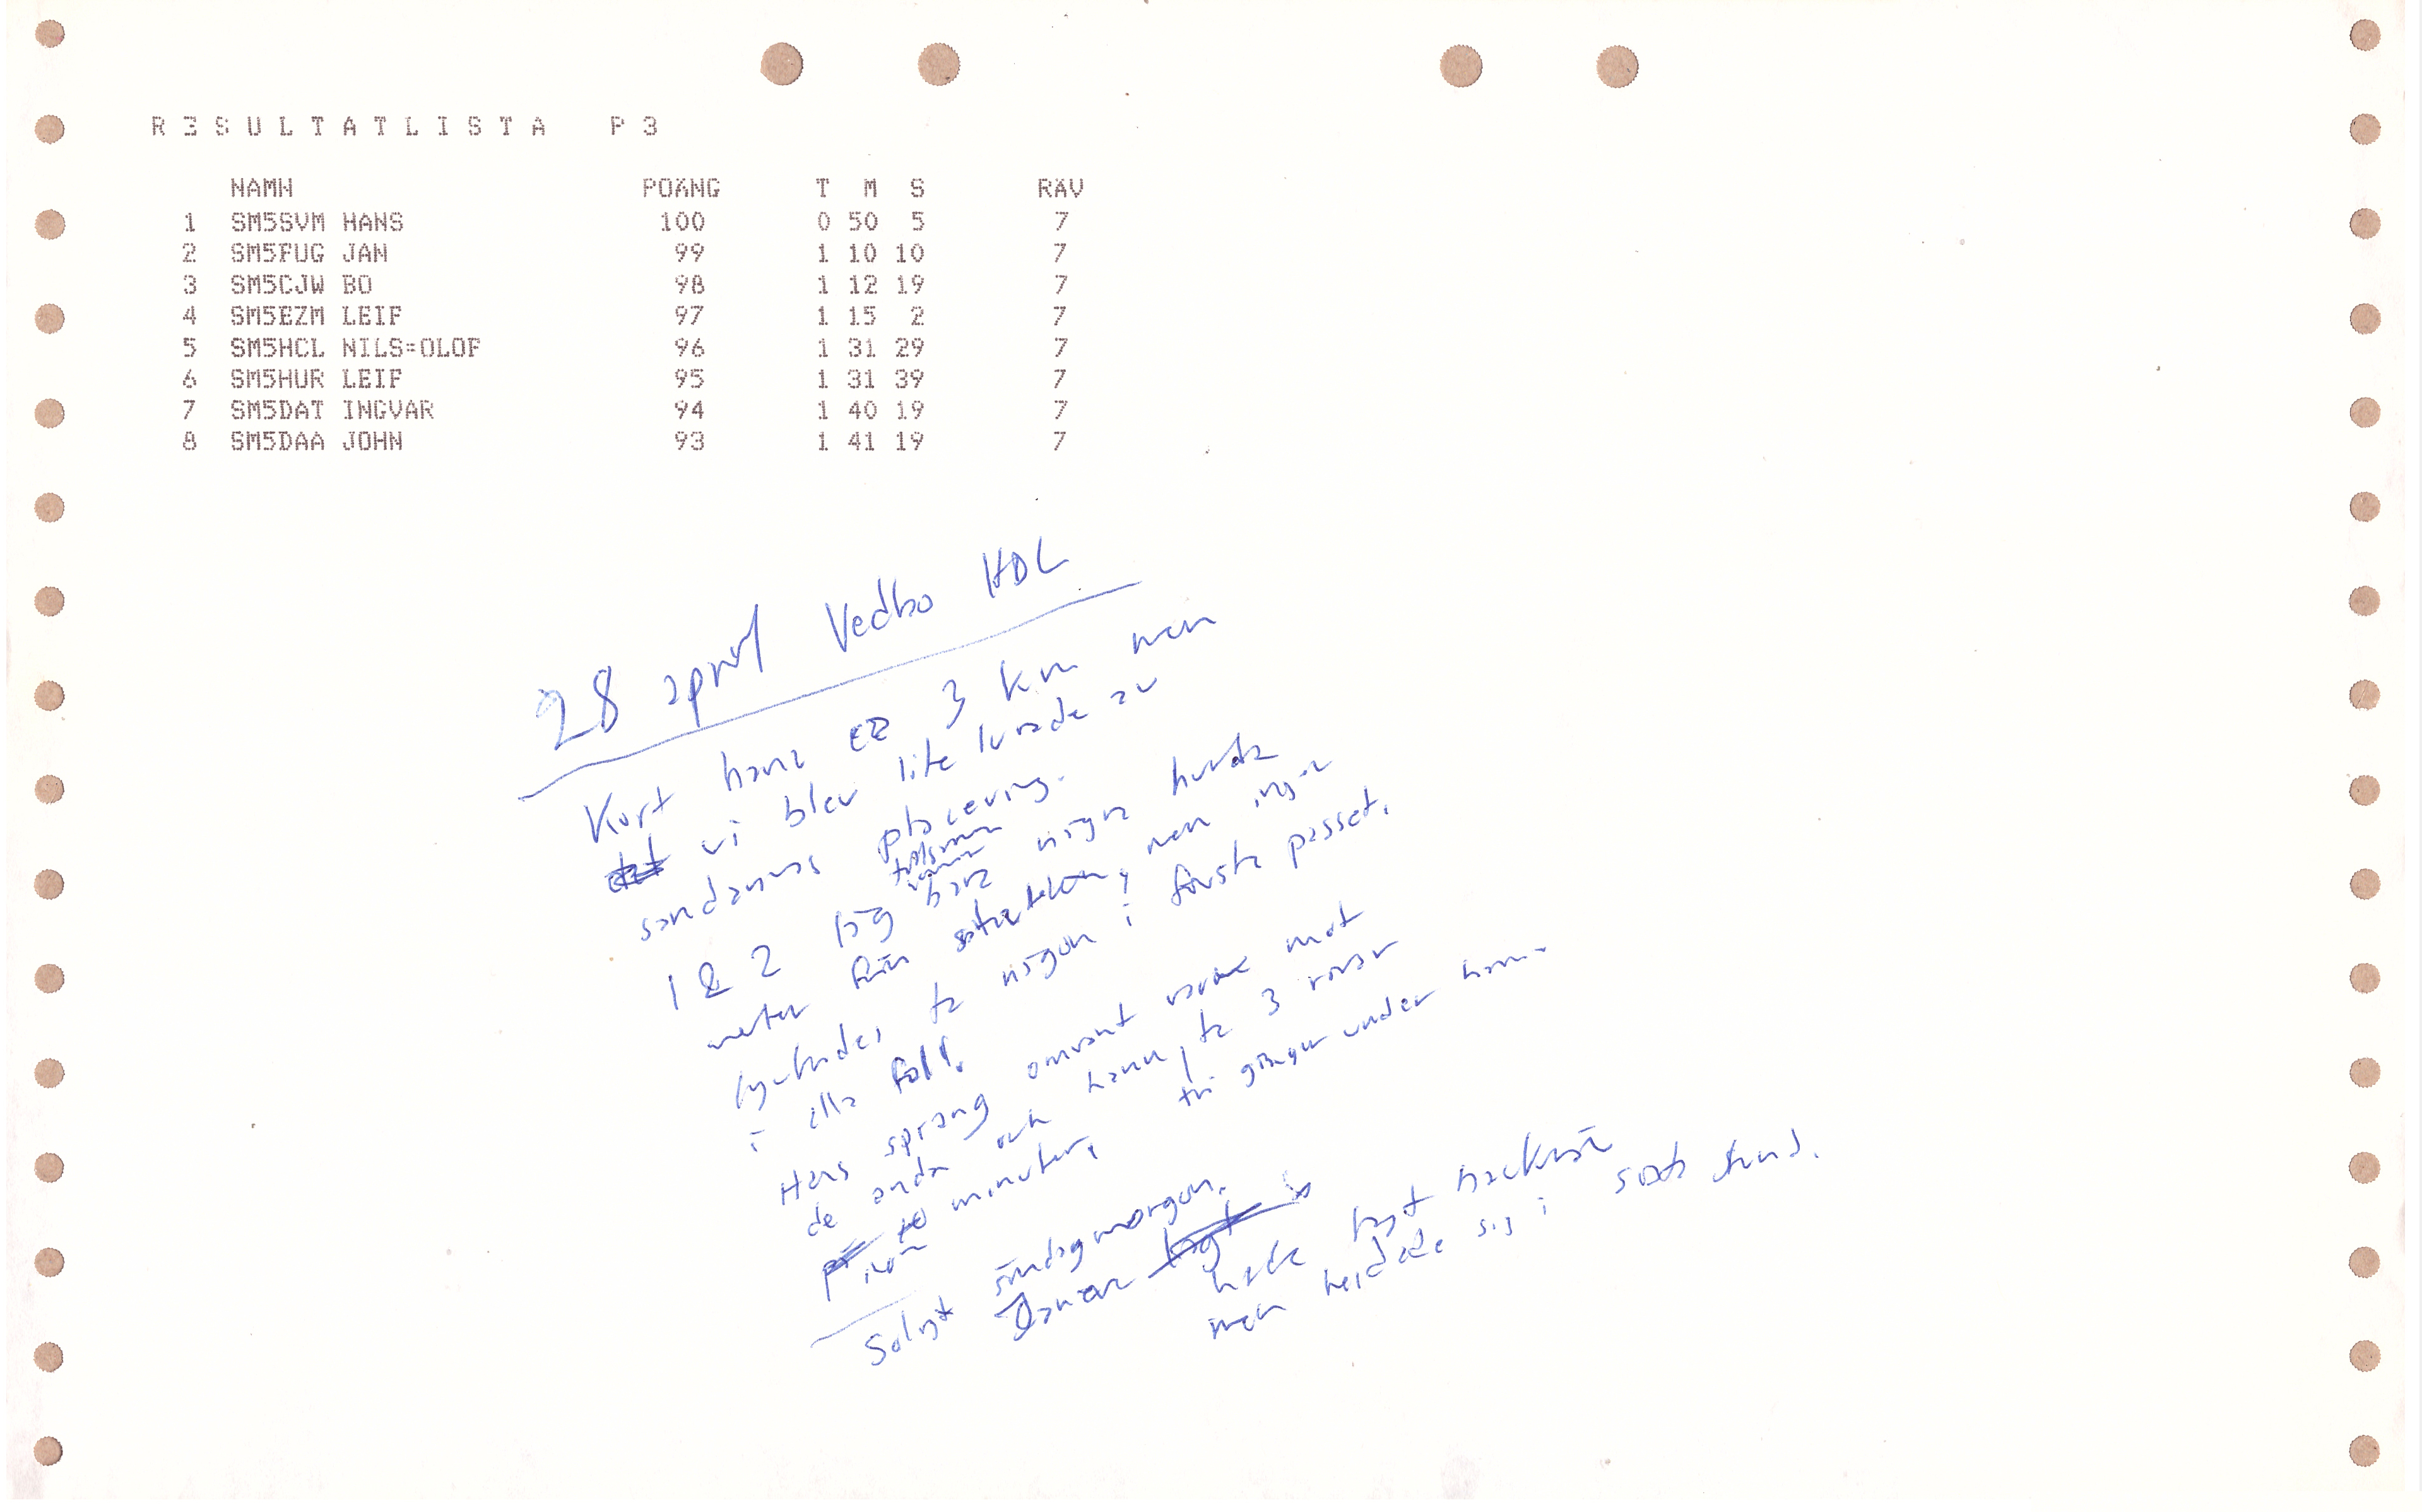 RESULTATLISTA P3
NAMN POÄNG T M S RÄV
1 SM5SVM HANS 100 0 50 5 7
2 SM5FUG JAN 99 1 10 10 7
3 SM5CJW BO 98 1 12 19 7
4 SM5EZM LEIF 97 1 15 2 7
5 SM5HCL NILS=OLOF 96 1 31 29 7
6 SM5HUR LEIF 95 1 31 39 7
7 SM5DAT INGVAR 94 1 40 19 7
8 SM5DAA JOHN 93 1 41 19 7
28 april Vedbo HDL
Kort bana ca 3 km men
vi blev lite lurade av
sändarnas placering.
1 & 2 låg bara några hundra
meter från men ingen
lyckades ta någon i första passet.
i alla fall.
Hans sprang omvänt varv mot
de andra och hann ta 3 rävar
inom 10 minuter,
tre gånger under
Soligt söndagmorgon.
Banan
hade lagt
men sig i sista stund.